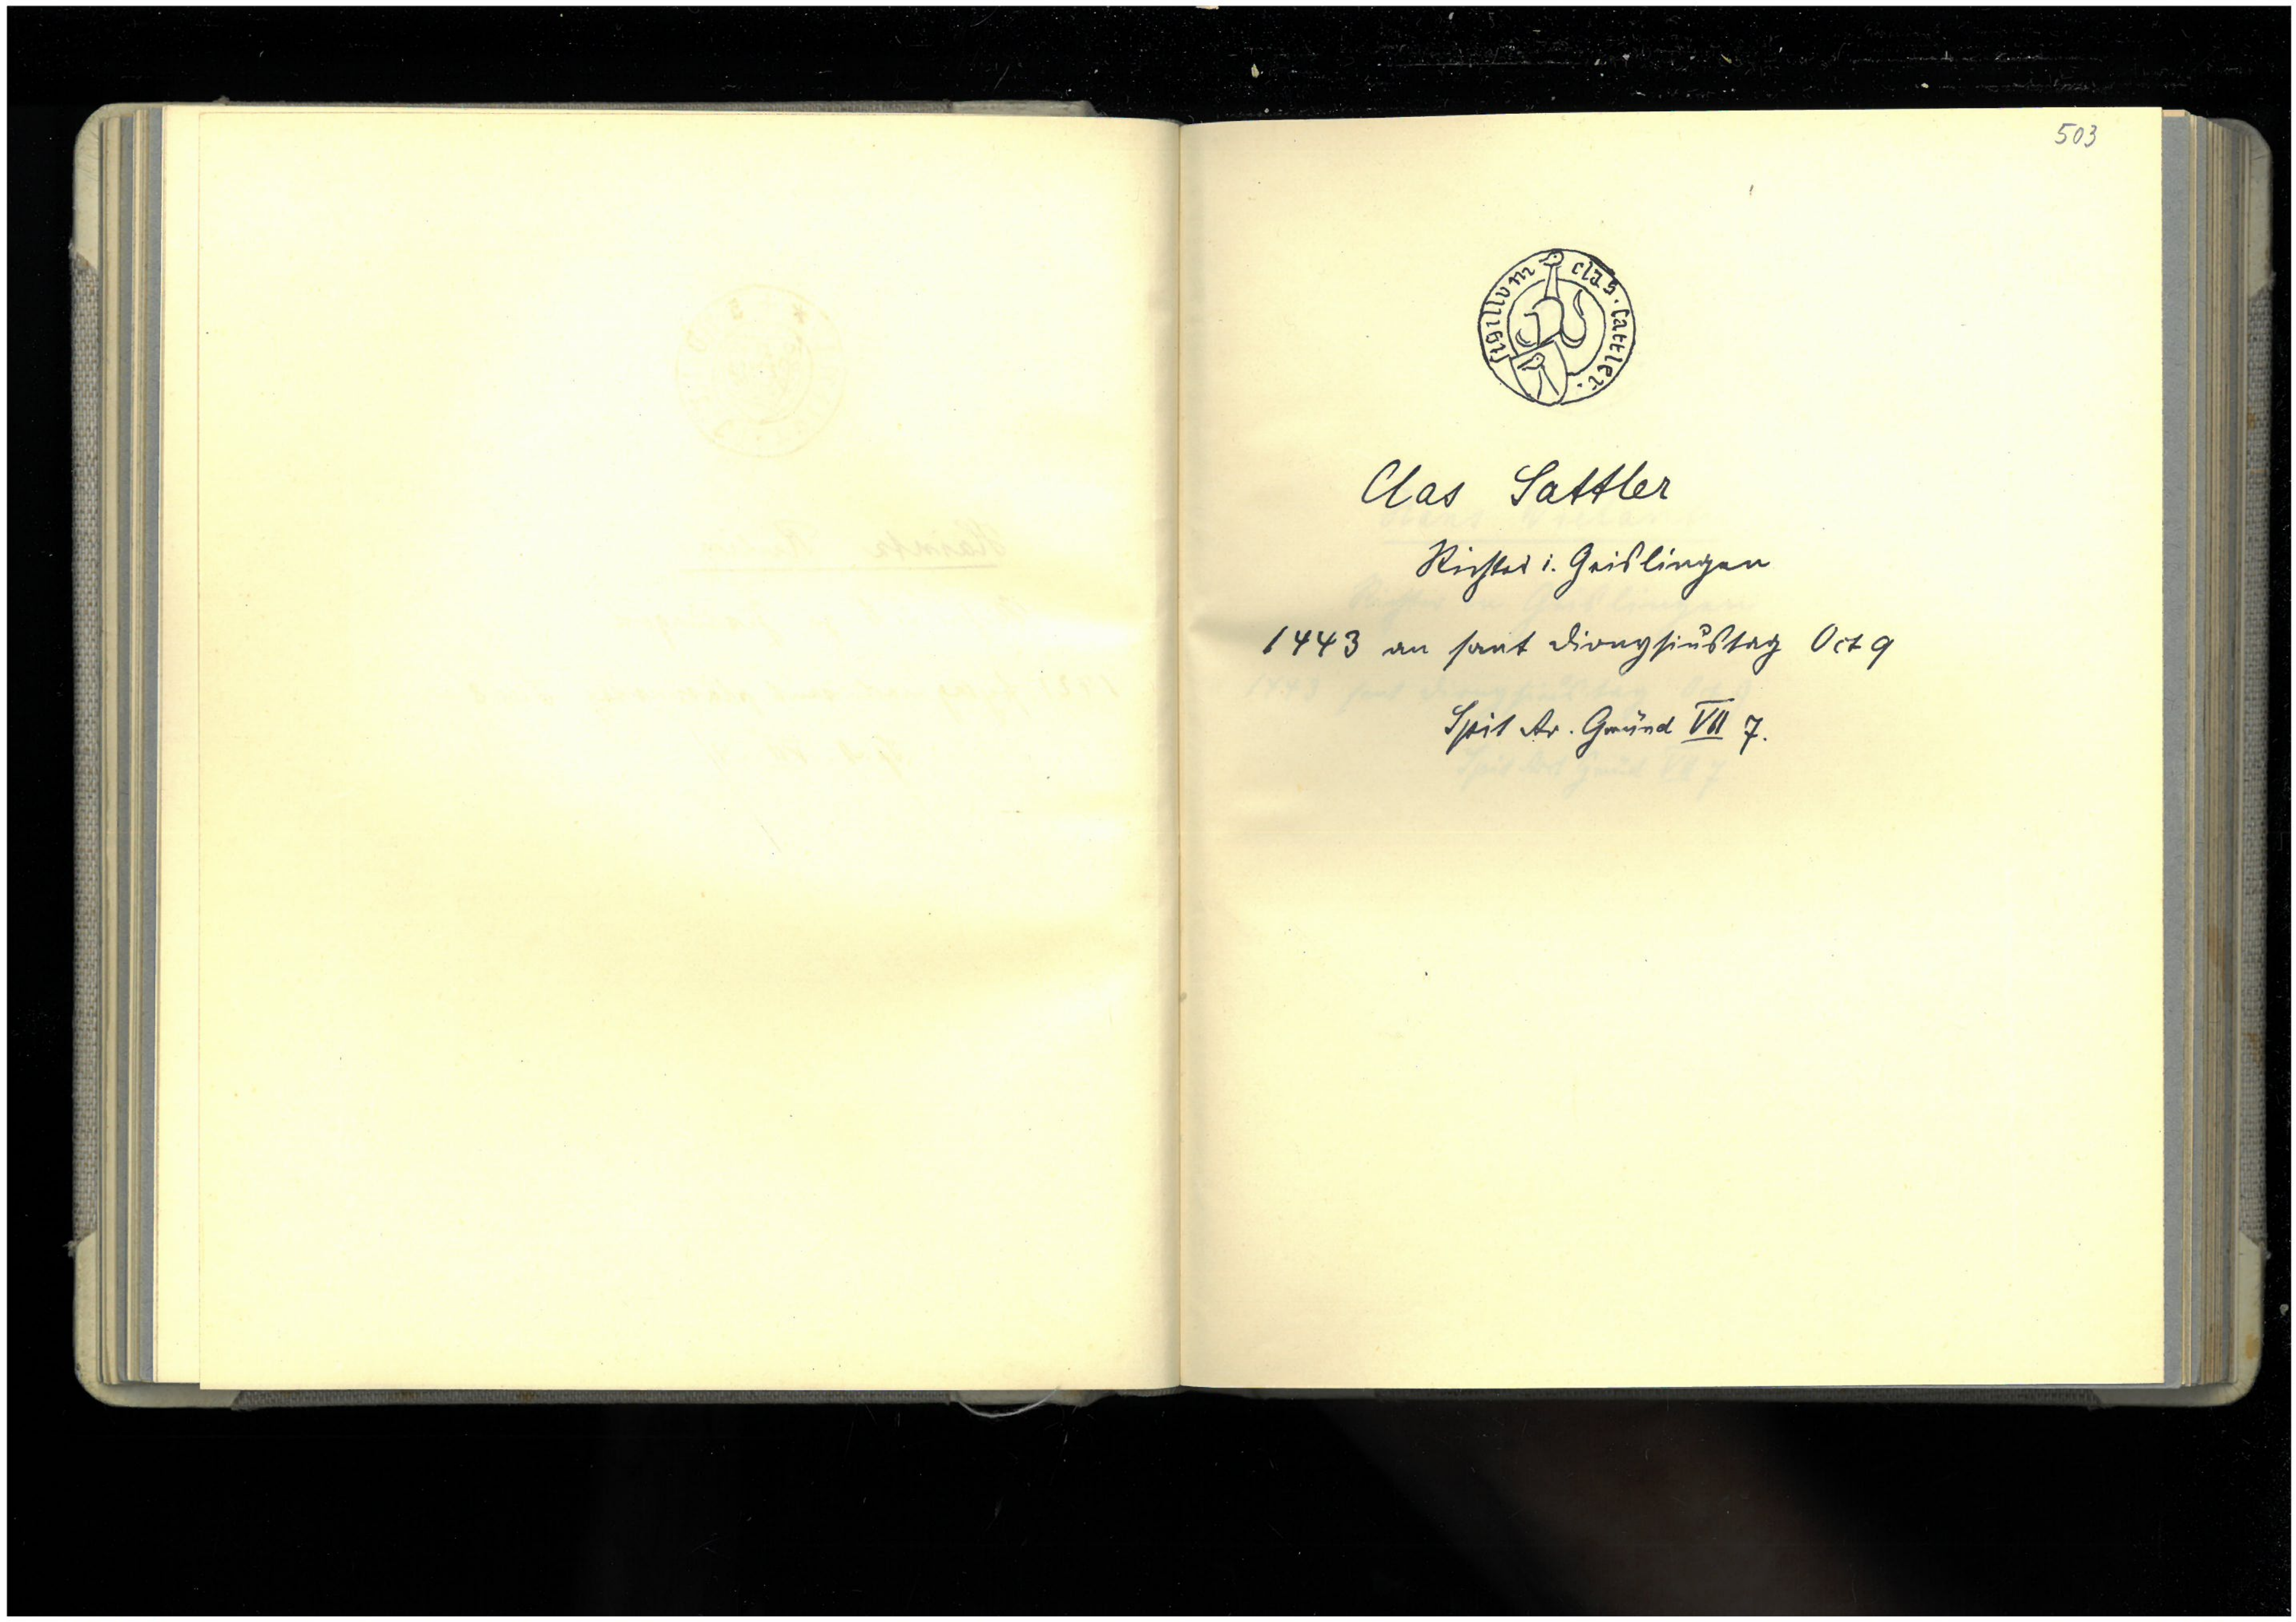 503
sigillvm clas. sattler.
Clas Sattler
Richter i. Geislingen
1443 an sant Dionysiustag Oct 9
Spit Ar. Gmünd VII 7.